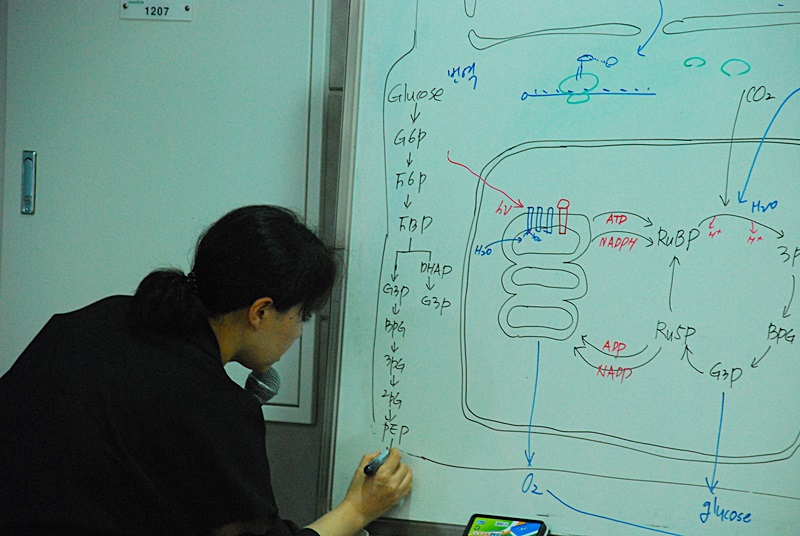 1207
번역
Glucose
G6P
F6P
FBP
DHAP
G3P
G3P
BPG
3PG
2PG
PEP
CO₂
hν
H₂O
ATP
NADPH
RuBP
H₂O
H⁺
H⁺
3P
BPG
G3P
Ru5P
ADP
NADP
O₂
glucose